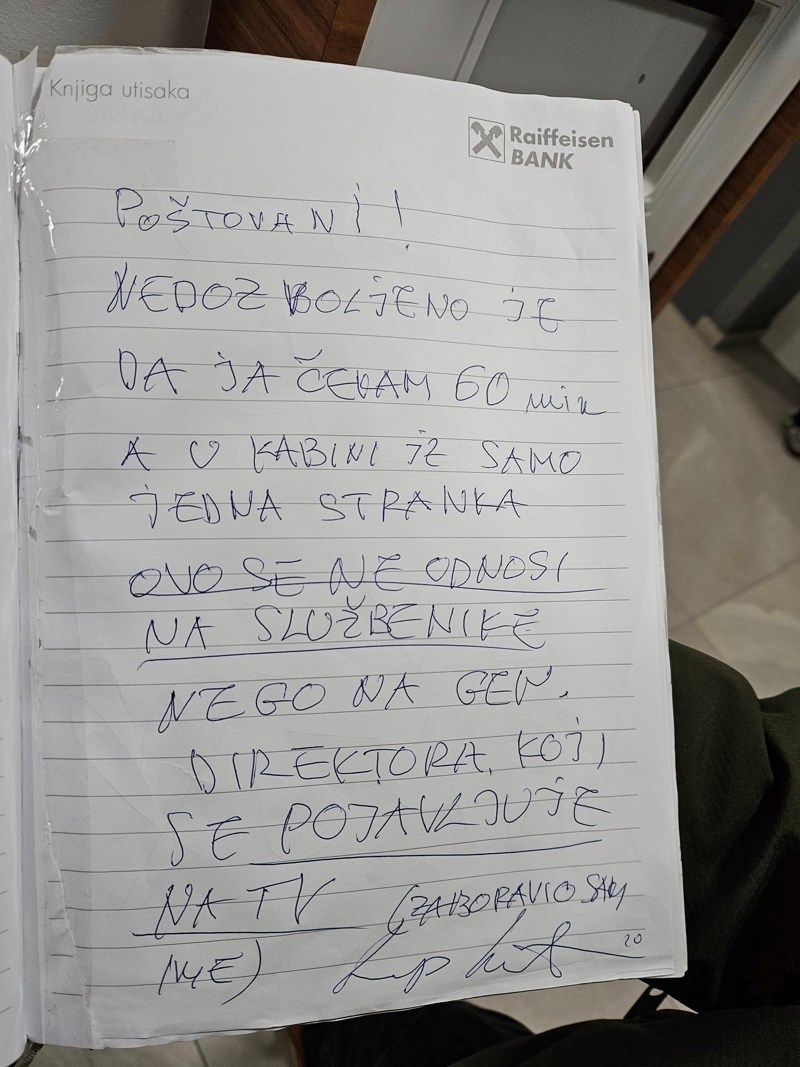 Knjiga utisaka
Raiffeisen
BANK
POŠTOVANI!
NEDOZVOLJENO JE
DA JA ČEKAM 60 min
A U KABINI JE SAMO
JEDNA STRANKA
OVO SE NE ODNOSI
NA SLUŽBENIKE
NEGO NA GEN.
DIREKTORA, KOJI
SE POJAVLJUJE
NA TV (ZABORAVIO SAM
IME)
20